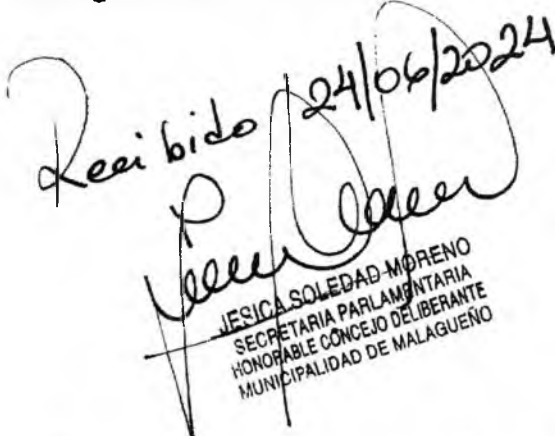 Recibido 24/06/2024
JESICA SOLEDAD MORENO
SECRETARIA PARLAMENTARIA
HONORABLE CONCEJO DELIBERANTE
MUNICIPALIDAD DE MALAGUEÑO